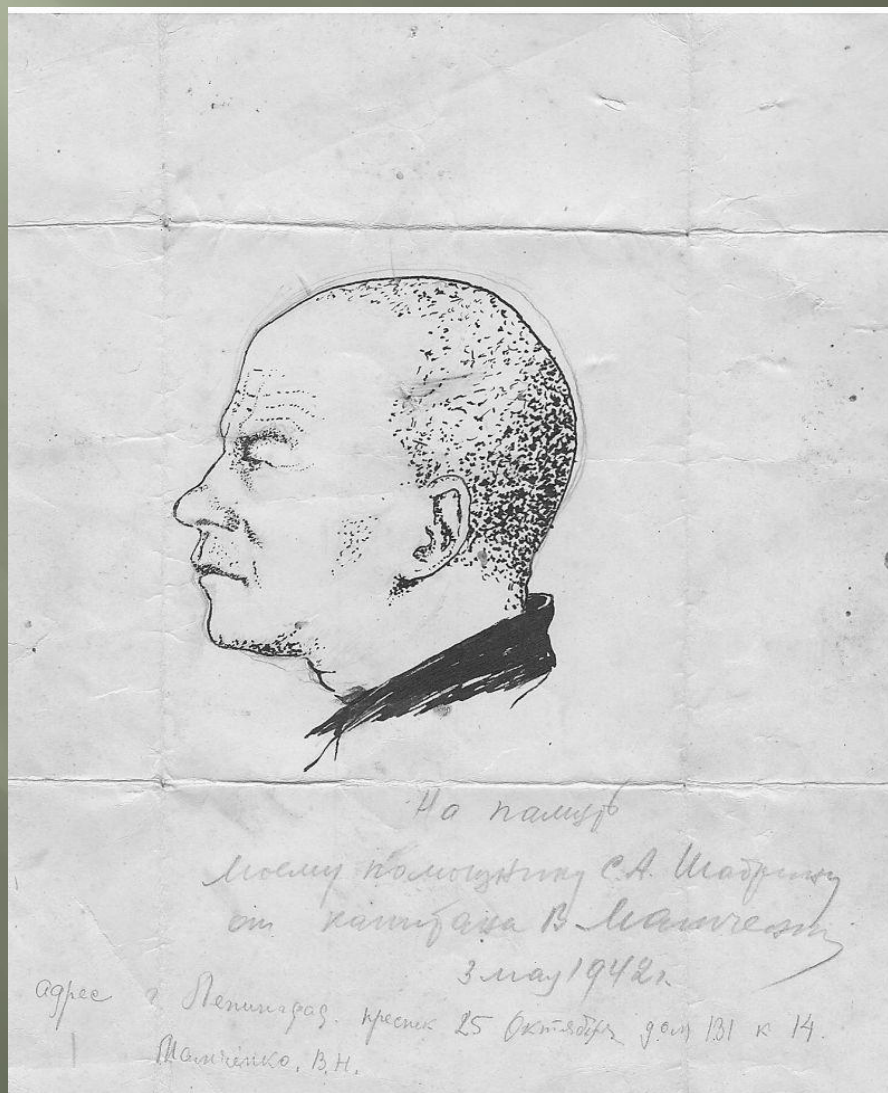 На память
моему помощнику С.А. Шабрину
от капитана В Мамченко
3 мая 1942 г.
адрес г Ленинград. проспек 25 Октября дом 131 к 14.
Мамченко. В.Н.